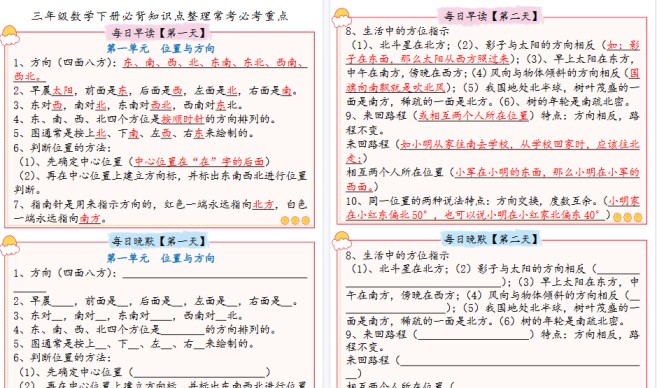 三年级数学下册必背知识点整理常考必考重点
每日早读【第一天】
第一单元 位置与方向
1、方向（四面八方）：东、南、西、北、东南、东北、西南、
西北。
2、早晨太阳，前面是东，后面是西，左面是北，右面是南。
3、东对西，南对北，东南对西北，西南对东北。
4、东、南、西、北四个方位是按顺时针的方向排列的。
5、图通常是按上北、下南、左西、右东来绘制的。
6、判断位置的方法：
（1）、先确定中心位置（中心位置在“在”字的后面）
（2）、再在中心位置上建立方向标，并标出东南西北进行位置
判断。
7、指南针是用来指示方向的，红色一端永远指向北方，白色
一端永远指向南方。
每日晚默【第一天】
第一单元 位置与方向
1、方向（四面八方）：____
____
2、早晨____，前面是__，后面是__，左面是__，右面是__。
3、东对__，南对__，东南对____，西南对__北。
4、东、南、西、北四个方位是________的方向排列的。
5、图通常是按上__、下__、左__、右__来绘制的。
6、判断位置的方法：
（1）、先确定中心位置（____）
（2）、再在中心位置上建立方向标，并标出东南西北进行位置
每日早读【第二天】
8、生活中的方位指示
（1）、北斗星在北方；（2）、影子与太阳的方向相反（如：影
子在东面，那么太阳从西方照过来）；（3）、早上太阳在东方，
中午在南方，傍晚在西方；（4）风向与物体倾斜的方向相反（国
旗向南飘就是吹北风）；（5）我国地处北半球，树叶茂盛的一
面是南方，稀疏的一面是北方。（6）、树的年轮是南疏北密。
9、来回路程（或相互两个人所在位置）特点：方向相反，路
程不变。
来回路程（如小明从家往南去学校，从学校回家时，应该往北
走；）
相互两个人所在位置（小军在小明的东面，那么小明在小军的
西面。）
10、同一位置的两种说法特点：方向交换，度数互余。（小明家
在小红东偏北50°，也可以说小明在小红家北偏东40°）
每日晚默【第二天】
8、生活中的方位指示
（1）、北斗星在北方；（2）影子与太阳的方向相反（____
____）；（3）早上太阳在东方，
中午在南方，傍晚在西方；（4）风向与物体倾斜的方向相反（__
____）；（5）我国地处北半球，树叶茂盛的一
面是南方，稀疏的一面是北方。（6）树的年轮是南疏北密。
9、来回路程（____）特点：方向相反，路
程不变。
来回路程（____
____）
相互两个人所在位置（____